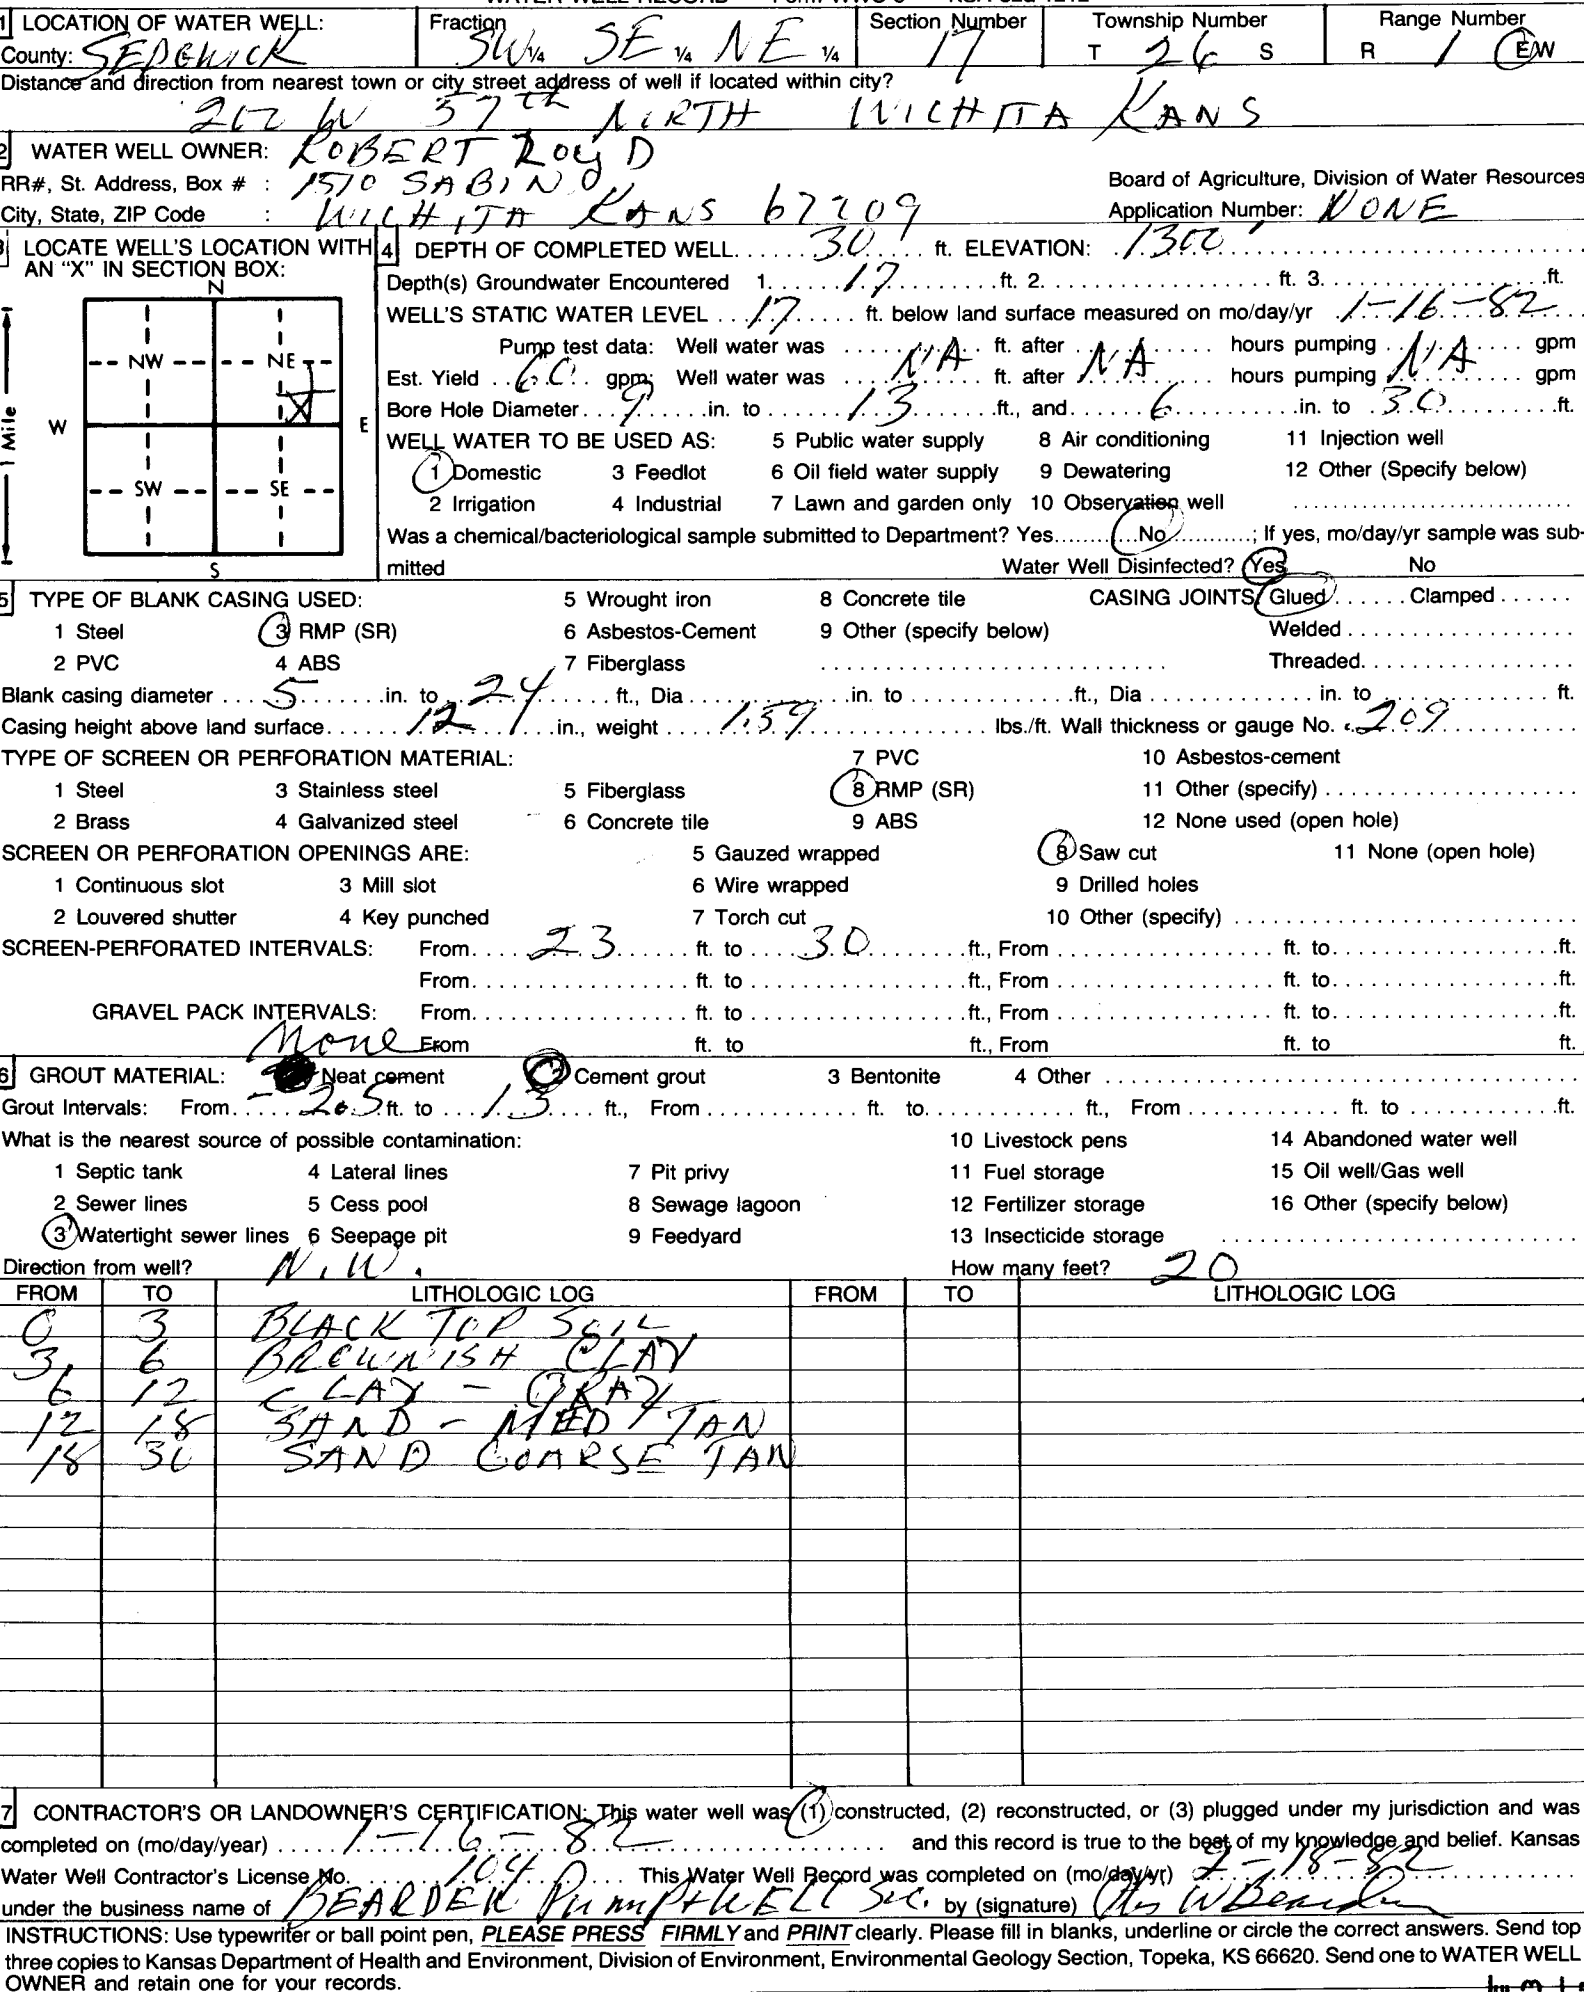 1 LOCATION OF WATER WELL: Fraction Section Number Township Number Range Number
County: SEDGWICK SW ¼ SE ¼ NE ¼ 17 T 26 S R 1 E/W
Distance and direction from nearest town or city street address of well if located within city?
57th NORTH WICHITA KANS
2 WATER WELL OWNER: ROBERT ROY D
RR#, St. Address, Box # : 1510 SABIN
Board of Agriculture, Division of Water Resources
City, State, ZIP Code : WICHITA KANS 67209 Application Number: NONE
3 LOCATE WELL'S LOCATION WITH AN "X" IN SECTION BOX:
N
NW NE
W E
SW SE
S
1 Mile
X
4 DEPTH OF COMPLETED WELL 30 ft. ELEVATION: 1300'
Depth(s) Groundwater Encountered 1. 17 ft. 2. ft. 3. ft.
WELL'S STATIC WATER LEVEL 17 ft. below land surface measured on mo/day/yr 1-16-82
Pump test data: Well water was NA ft. after NA hours pumping NA gpm
Est. Yield 60 gpm; Well water was ft. after hours pumping gpm
Bore Hole Diameter 9 in. to 13 ft., and 6 in. to 30 ft.
WELL WATER TO BE USED AS: 5 Public water supply 8 Air conditioning 11 Injection well
1 Domestic 3 Feedlot 6 Oil field water supply 9 Dewatering 12 Other (Specify below)
2 Irrigation 4 Industrial 7 Lawn and garden only 10 Observation well
Was a chemical/bacteriological sample submitted to Department? Yes No ; If yes, mo/day/yr sample was sub-
mitted Water Well Disinfected? Yes No
5 TYPE OF BLANK CASING USED: 5 Wrought iron 8 Concrete tile CASING JOINTS: Glued Clamped
1 Steel 3 RMP (SR) 6 Asbestos-Cement 9 Other (specify below) Welded
2 PVC 4 ABS 7 Fiberglass Threaded
Blank casing diameter 5 in. to 24 ft., Dia in. to ft., Dia in. to ft.
Casing height above land surface 12 in., weight 1.59 lbs./ft. Wall thickness or gauge No. .209
TYPE OF SCREEN OR PERFORATION MATERIAL: 7 PVC 10 Asbestos-cement
1 Steel 3 Stainless steel 5 Fiberglass 8 RMP (SR) 11 Other (specify)
2 Brass 4 Galvanized steel 6 Concrete tile 9 ABS 12 None used (open hole)
SCREEN OR PERFORATION OPENINGS ARE: 5 Gauzed wrapped 8 Saw cut 11 None (open hole)
1 Continuous slot 3 Mill slot 6 Wire wrapped 9 Drilled holes
2 Louvered shutter 4 Key punched 7 Torch cut 10 Other (specify)
SCREEN-PERFORATED INTERVALS: From 23 ft. to 30 ft., From ft. to ft.
From ft. to ft., From ft. to ft.
GRAVEL PACK INTERVALS: From ft. to ft., From ft. to ft.
None From ft. to ft., From ft. to ft.
6 GROUT MATERIAL: Neat cement Cement grout 3 Bentonite 4 Other
Grout Intervals: From 2.5 ft. to 13 ft., From ft. to ft., From ft. to ft.
What is the nearest source of possible contamination: 10 Livestock pens 14 Abandoned water well
1 Septic tank 4 Lateral lines 7 Pit privy 11 Fuel storage 15 Oil well/Gas well
2 Sewer lines 5 Cess pool 8 Sewage lagoon 12 Fertilizer storage 16 Other (specify below)
3 Watertight sewer lines 6 Seepage pit 9 Feedyard 13 Insecticide storage
Direction from well? N.W. How many feet? 20
FROM TO LITHOLOGIC LOG FROM TO LITHOLOGIC LOG
0 3 BLACK TOP SOIL
3 6 BROWNISH CLAY
6 12 CLAY - GRAY
12 18 SAND - MED TAN
18 30 SAND COARSE TAN
7 CONTRACTOR'S OR LANDOWNER'S CERTIFICATION: This water well was (1) constructed, (2) reconstructed, or (3) plugged under my jurisdiction and was
completed on (mo/day/year) 1-16-82 and this record is true to the best of my knowledge and belief. Kansas
Water Well Contractor's License No. 104 This Water Well Record was completed on (mo/day/yr) 2-18-82
under the business name of BEARDEN Pump & WELL Svc. by (signature) W Bearden
INSTRUCTIONS: Use typewriter or ball point pen, PLEASE PRESS FIRMLY and PRINT clearly. Please fill in blanks, underline or circle the correct answers. Send top
three copies to Kansas Department of Health and Environment, Division of Environment, Environmental Geology Section, Topeka, KS 66620. Send one to WATER WELL
OWNER and retain one for your records.